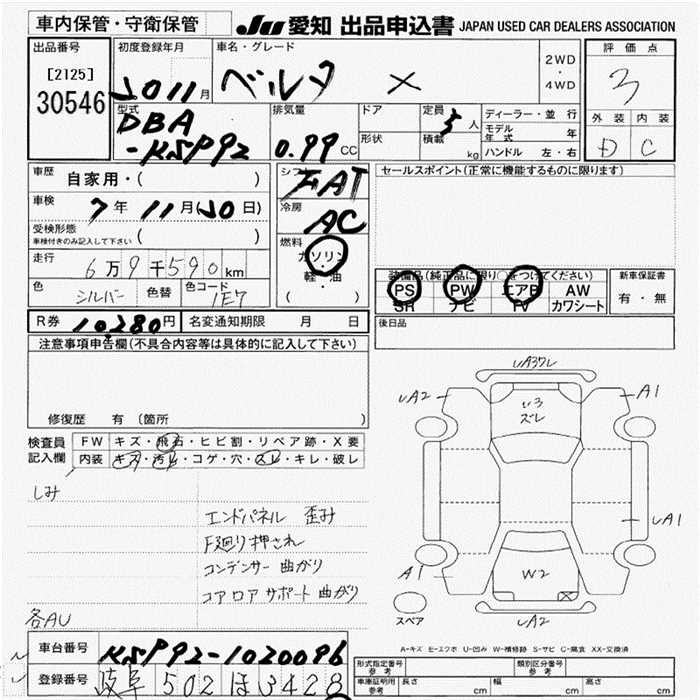 車内保管・守衛保管
JU 愛知 出品申込書 JAPAN USED CAR DEALERS ASSOCIATION
出品番号
[2125]
30546
初度登録年月
J0 11 月
車名・グレード
ベルタ X
2WD
・
4WD
評価点
3
外装 内装
D C
型式
DBA
-KSP92
排気量
0.99 CC
ドア
形状
定員
5 人
積載
kg
ディーラー・並行
モデル年式 年
ハンドル 左・右
車歴
自家用・( )
車検
7 年 11 月 (J0 日)
受検形態
車検付きのみ記入して下さい ( )
走行
6 万 9 千 590 km
色
シルバー
色替
色コード
1E7
シフト
FAT
冷房
AC
燃料
ガソリン
・
軽・油
( )
セールスポイント(正常に機能するものに限ります)
装備品(純正品に限り○をつけてください)
PS PW エアB AW
SR ナビ TV カワシート
新車保証書
有・無
R券 10,280円
名変通知期限 月 日
後日品
注意事項申告欄(不具合内容等は具体的に記入して下さい)
修復歴 有 (箇所 )
検査員記入欄
FW キズ・飛石・ヒビ割・リペア跡・X要
内装 キズ・汚れ・コゲ・穴・スレ・キレ・破レ
しみ
エンドパネル 歪み
F廻り押され
コンデンサー 曲がり
コアロアサポート曲がり
各AU
UA3ワレ
UA2
A1
U3
ズレ
UA1
A1
W2
X
UA2
スペア
A-キズ E-エクボ U-凹み W-補修跡 S-サビ C-腐食 XX-交換済
車台番号
KSP92-1020096
登録番号
岐阜 502 ほ 3428
形式指定番号
参考
類別区分番号
参考
車庫証明用
参考
長さ cm
幅 cm
高さ cm